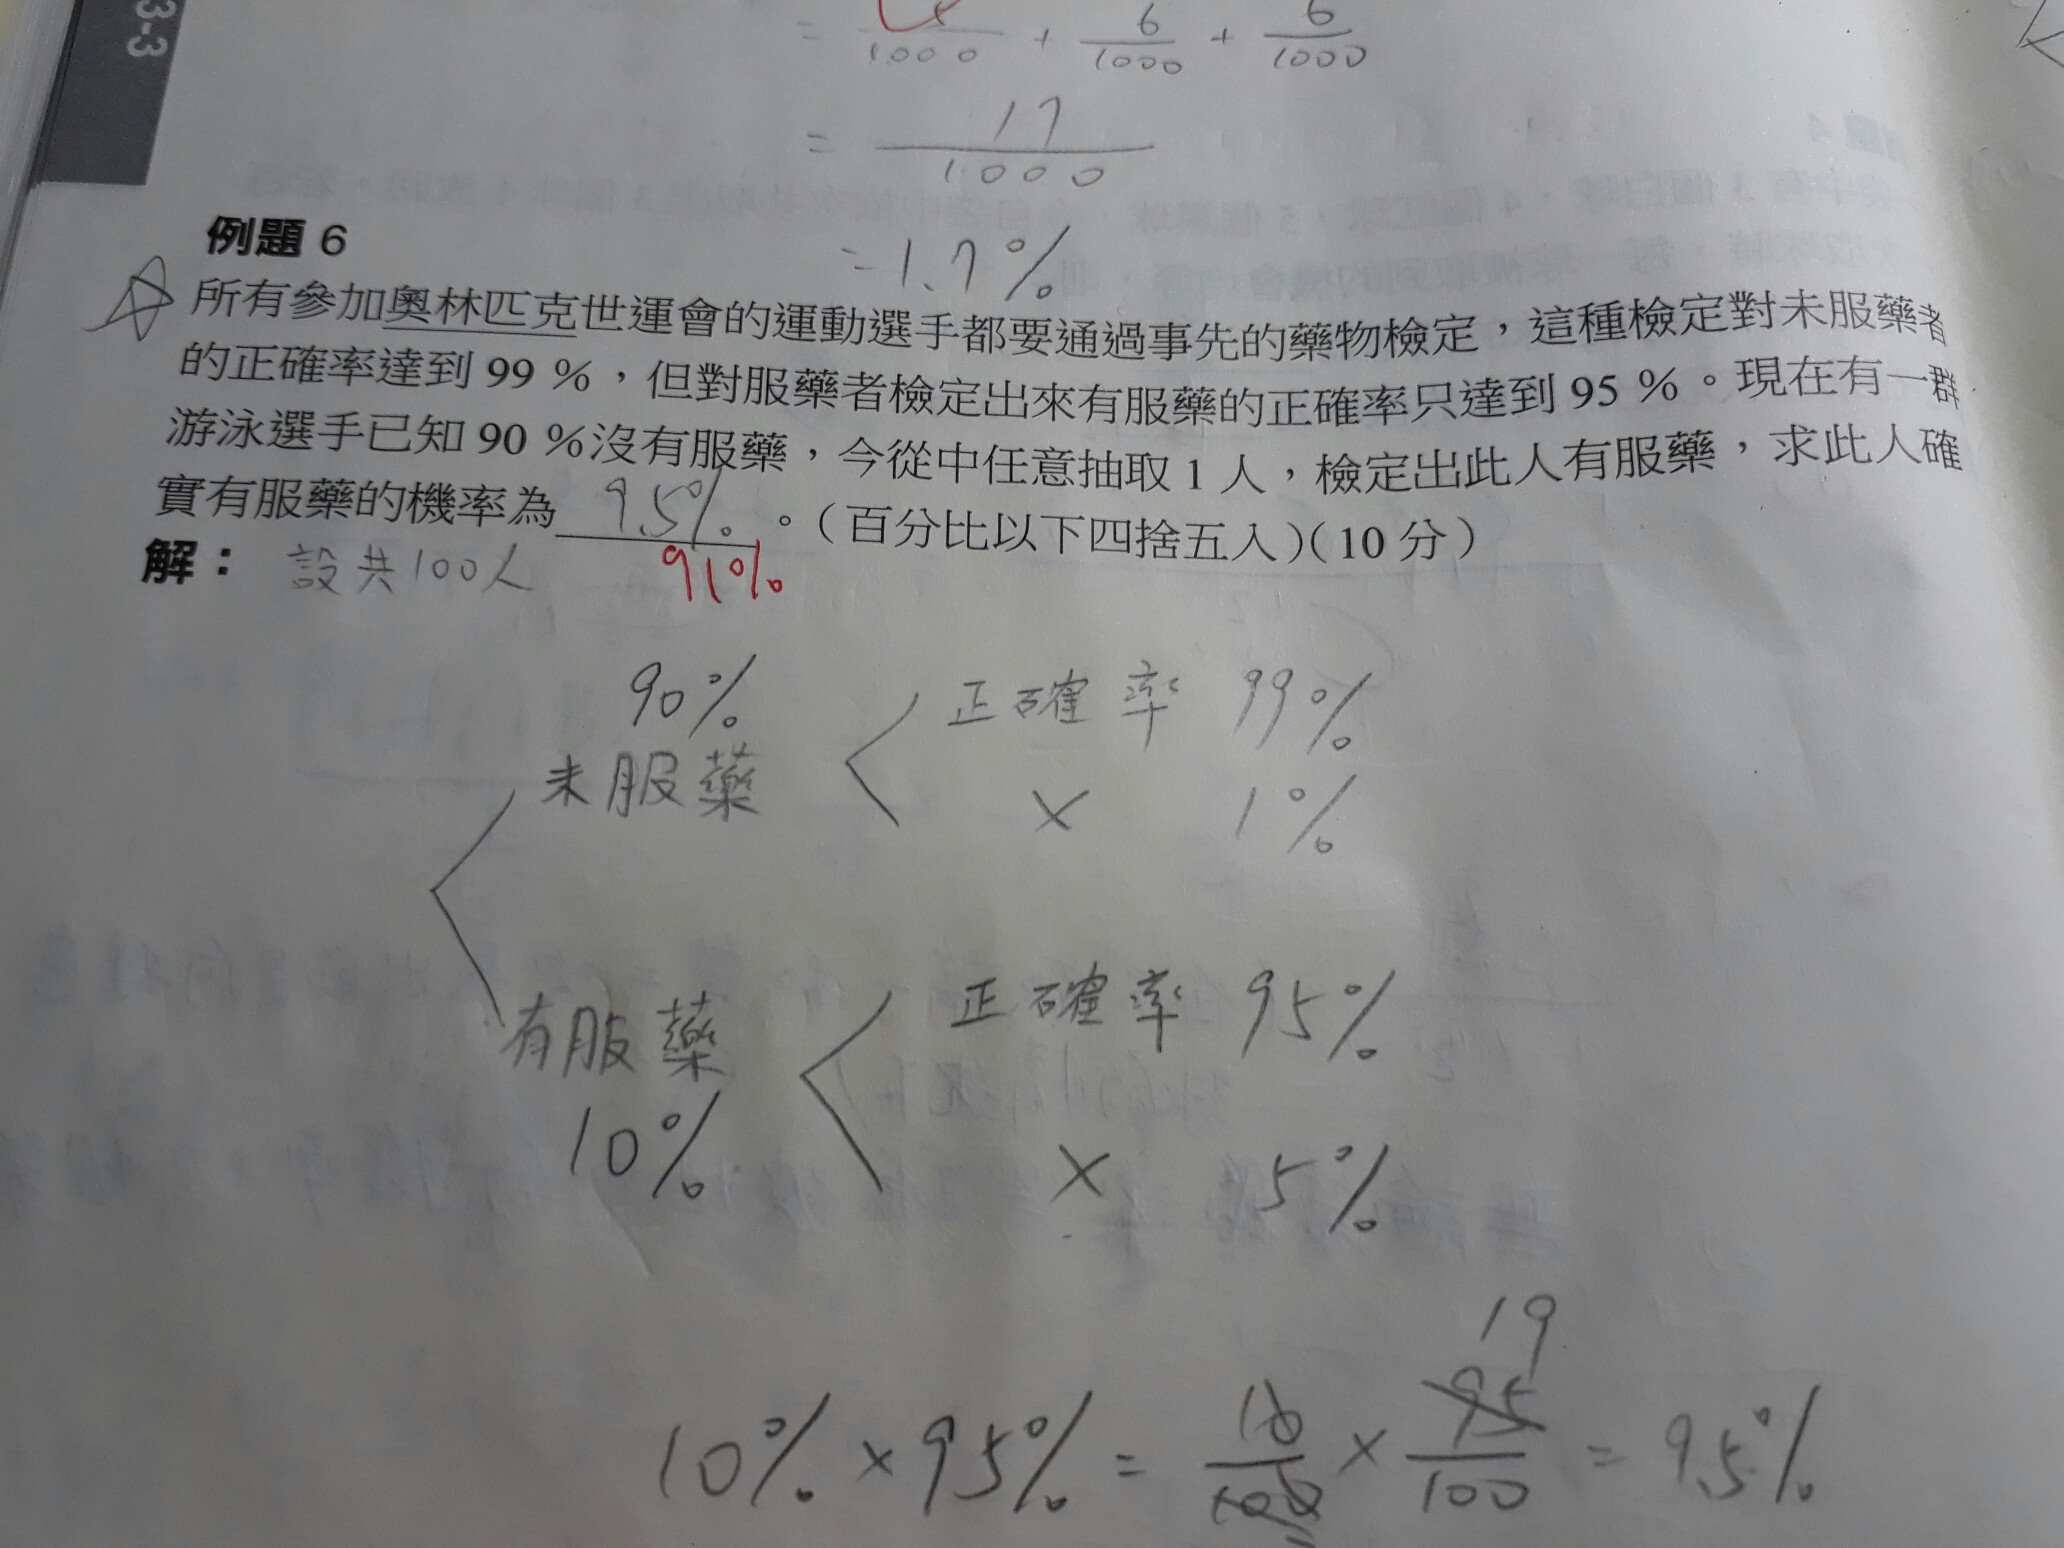 3-3
= 5/1000 + 6/1000 + 6/1000
= 17/1000
= 1.7%
例題 6
所有參加奧林匹克世運會的運動選手都要通過事先的藥物檢定，這種檢定對未服藥者
的正確率達到 99 %，但對服藥者檢定出來有服藥的正確率只達到 95 %。現在有一群
游泳選手已知 90 %沒有服藥，今從中任意抽取 1 人，檢定出此人有服藥，求此人確
實有服藥的機率為 9.5% 。（百分比以下四捨五入）（10 分）
91%
解： 設共100人
90%
未服藥
正確率 99%
× 1%
有服藥
10%
正確率 95%
× 5%
19
10% × 95% = 10/100 × 95/100 = 9.5%